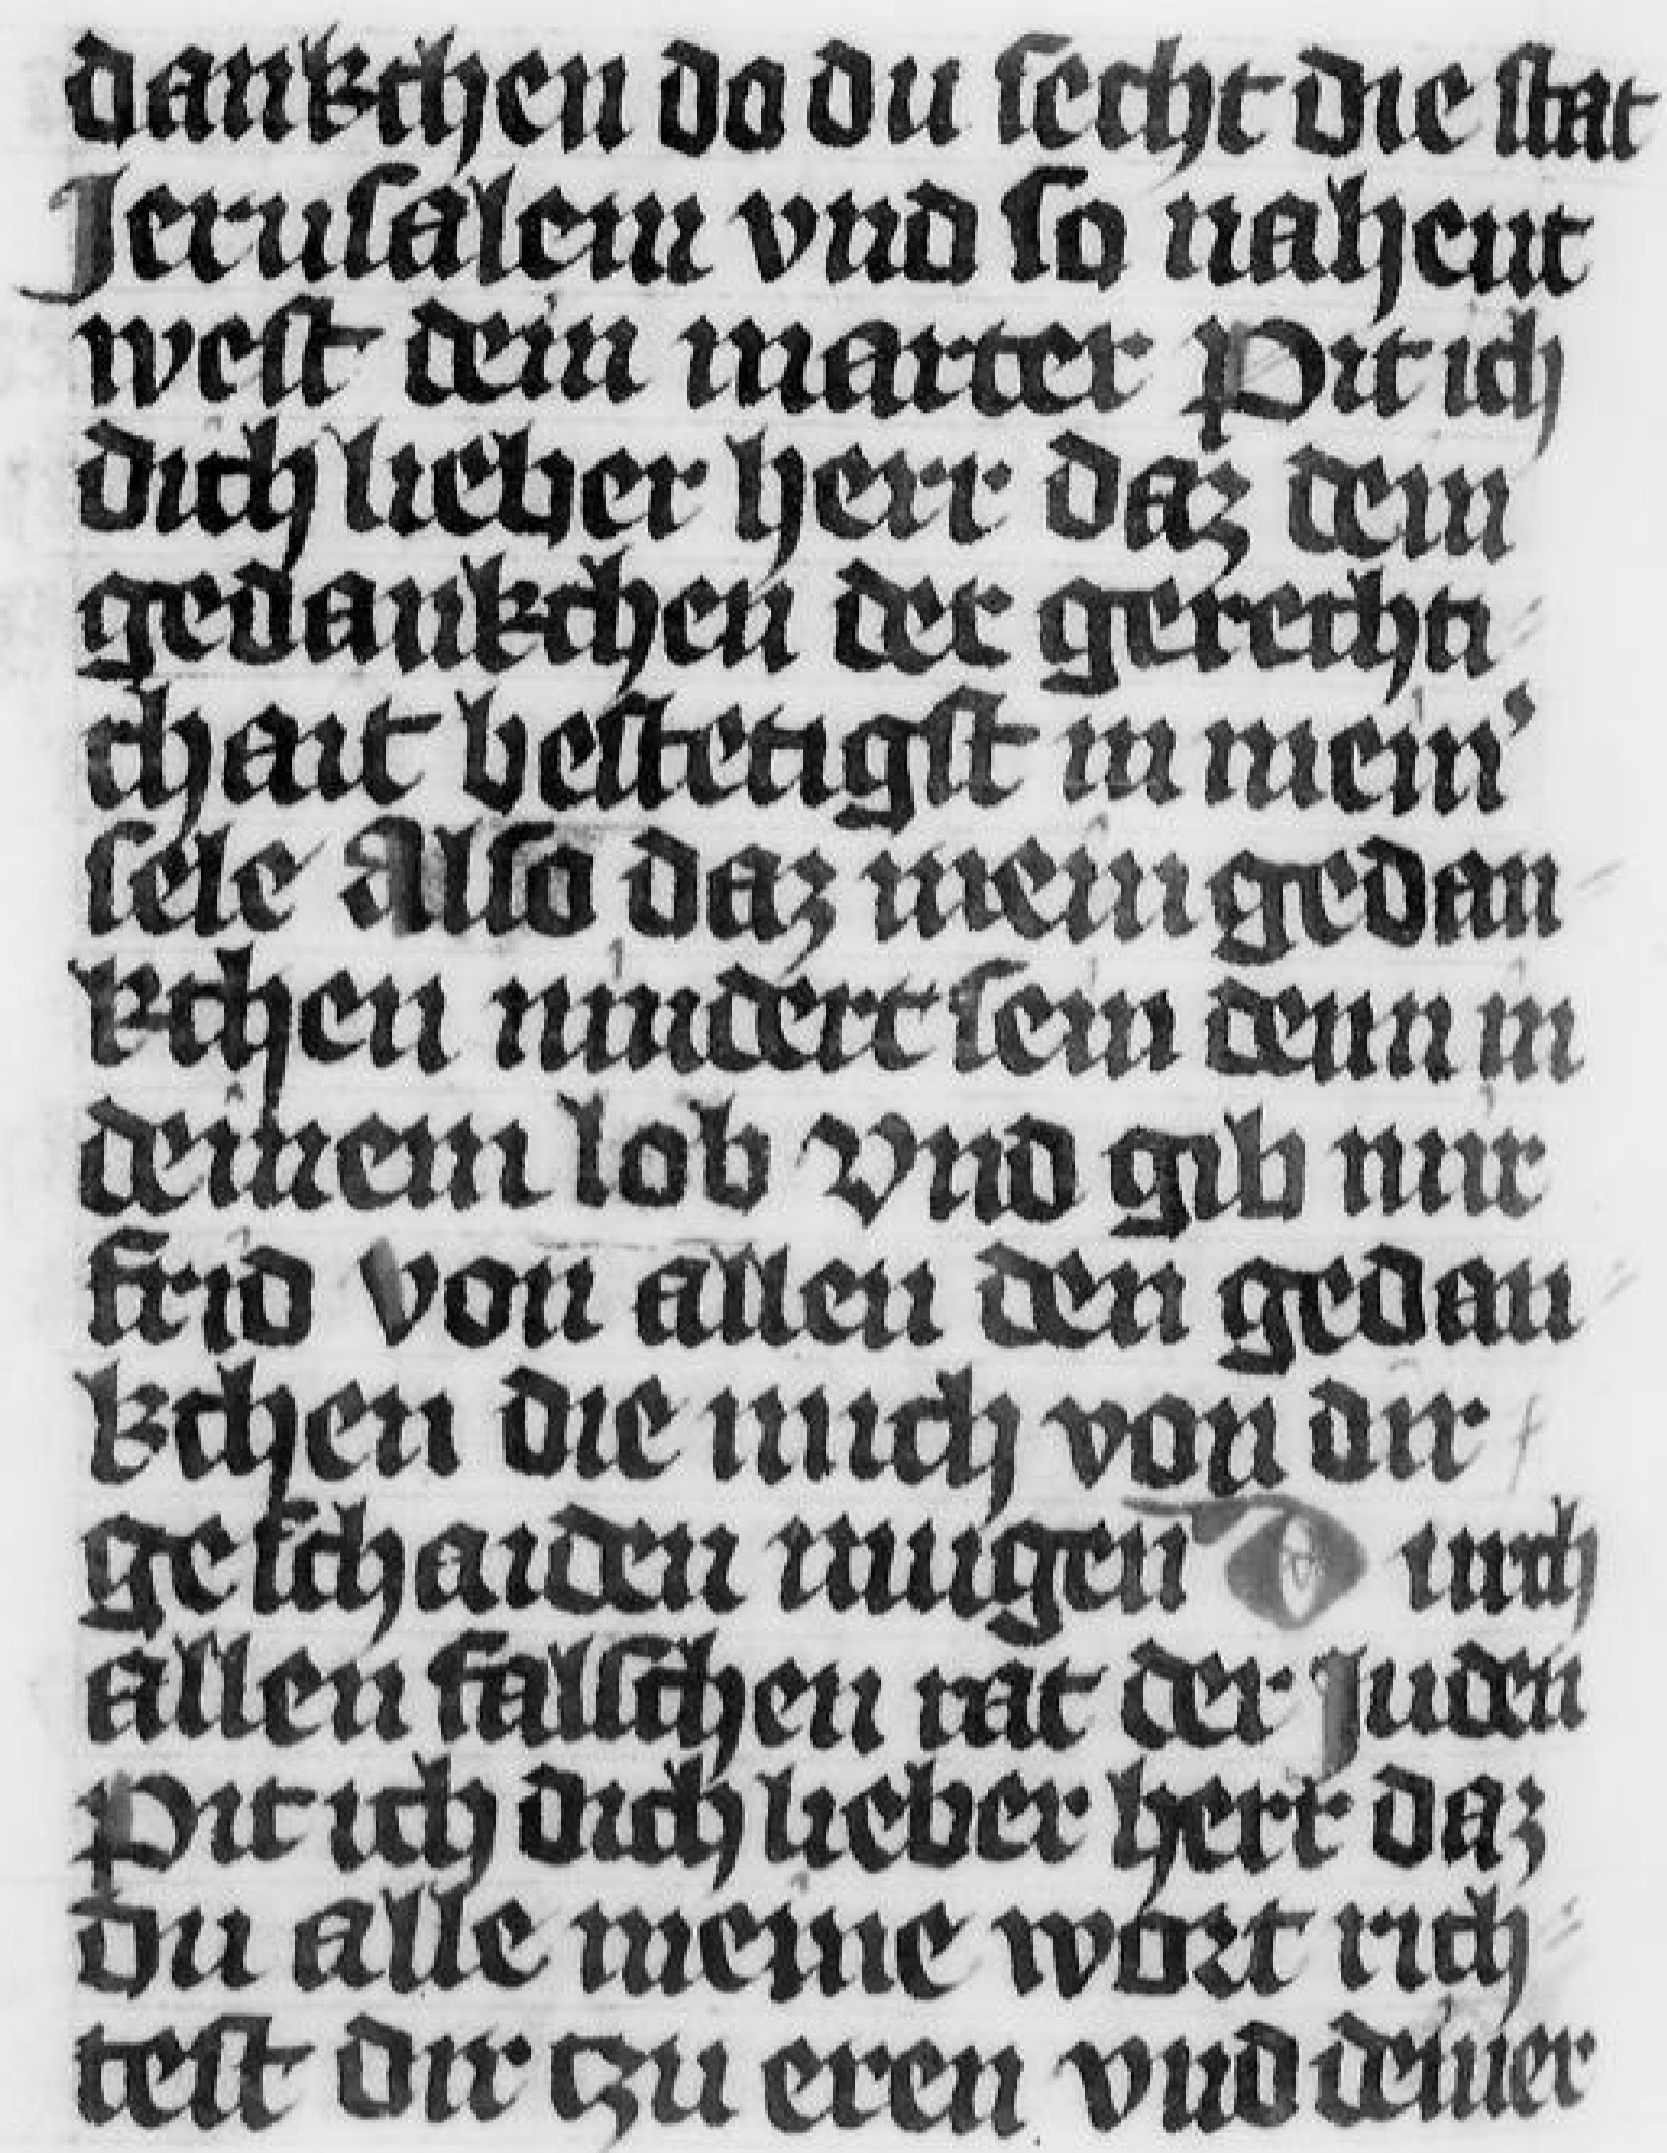 dankchen do du ſecht die ſtat
Jeruſalem vnd ſo nahent
weſt dein marter Pit ich
dich lieber herr daz dein
gedankchen der gerechti
chait beſtetigſt in mein'
ſele Alſo daz mein gedan
kchen nindert ſein denn in
deinem lob vnd gib mir
frid von allen den gedan
kchen die mich von dir
geſchaiden mugen D urch
allen falſchen rat der Juden
Pit ich dich lieber herr daz
du alle meine wort rich
teſt dir tzu eren vnd deiner